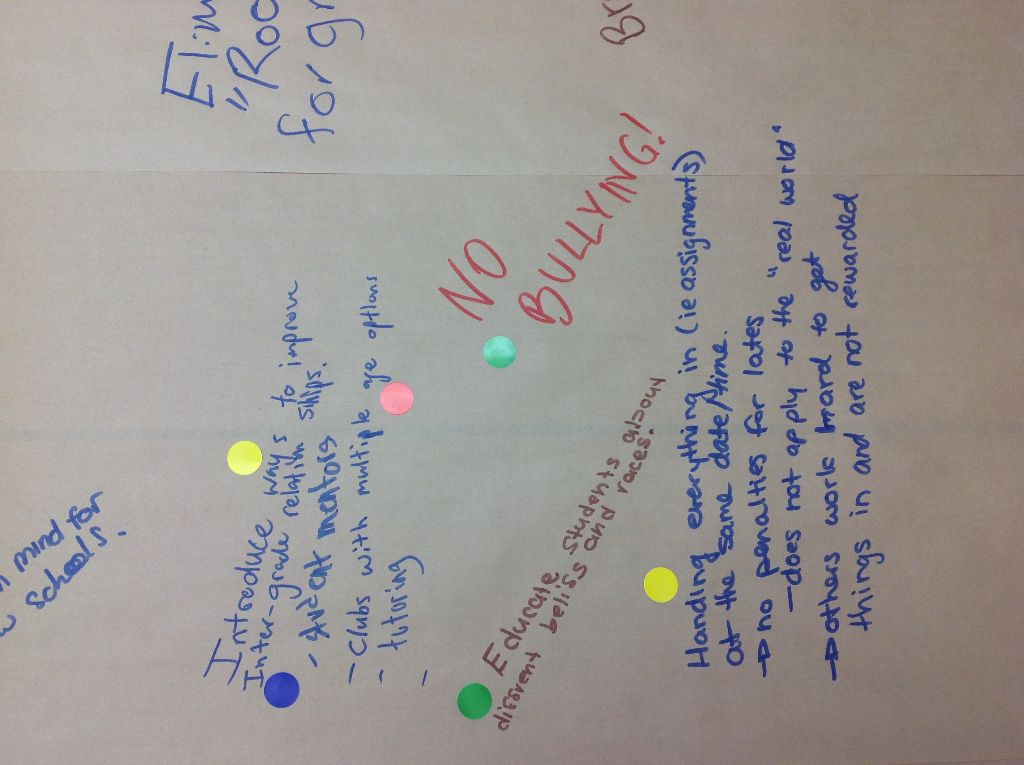 Elim
"Roo
for gr
Br
mind for
schools.
Introduce ways to improve
Inter-grade relation ships.
- Student mentors
- Clubs with multiple age options
- tutoring
-
NO
BULLYING!
Educate students about
different beliss and races.
Handing everything in (ie assignments)
at the same date/time.
→ no penalties for lates
- does not apply to the "real world"
→ others work hard to get
things in and are not rewarded